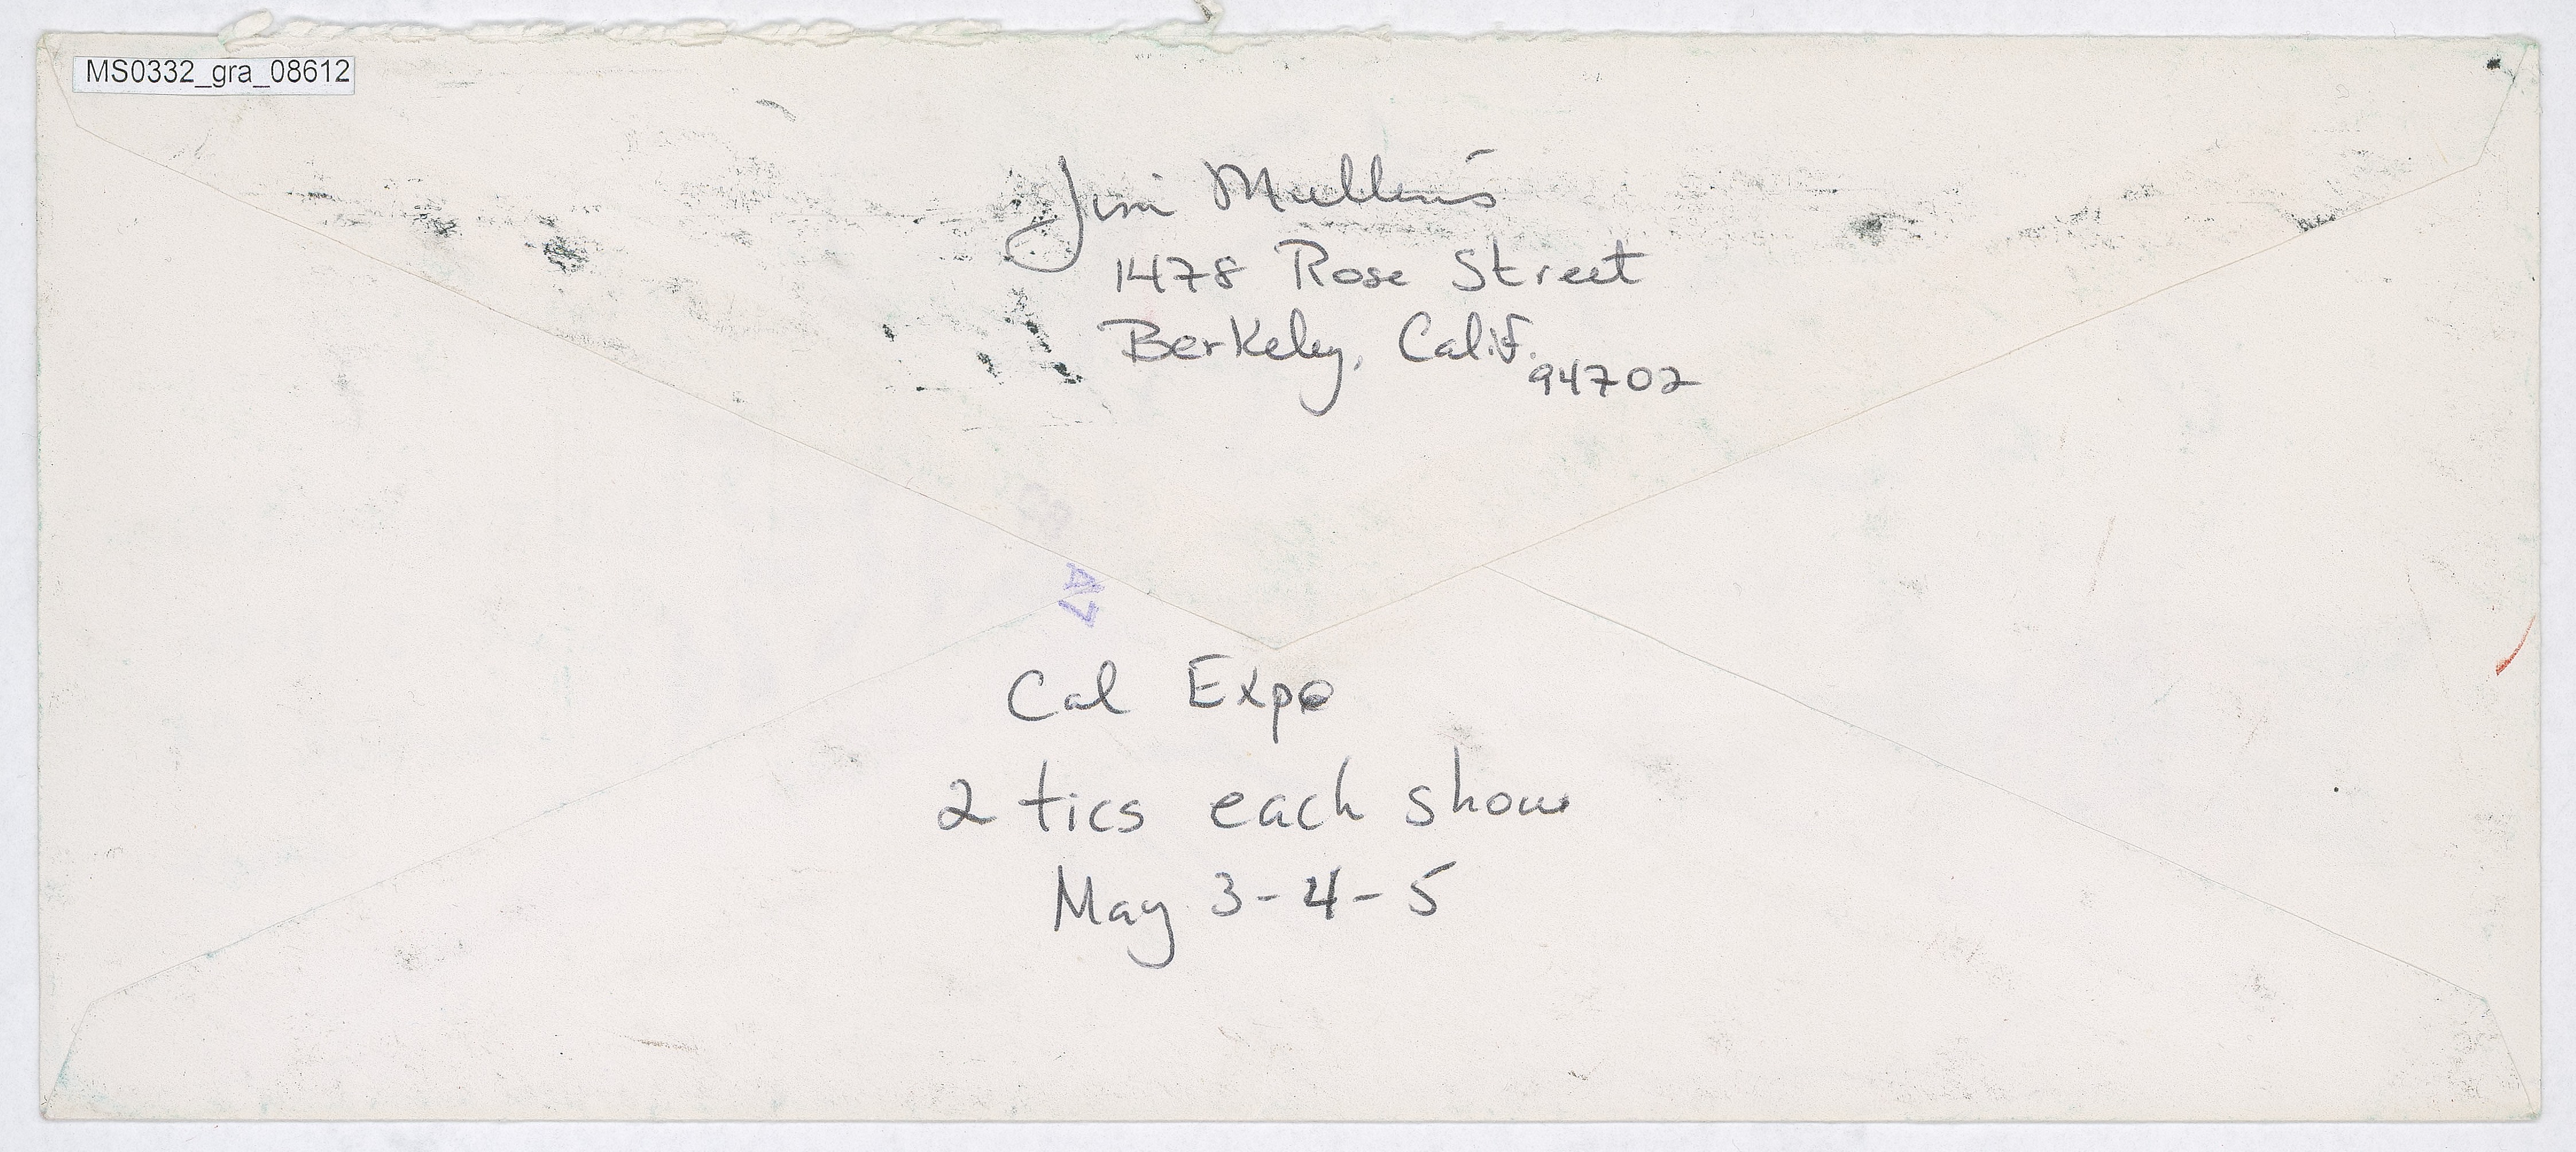 MS0332_gra_08612
Jim Mullins
1478 Rose Street
Berkeley, Calif.
94702
A7
Cal Expo
2 tics each show
May 3-4-5